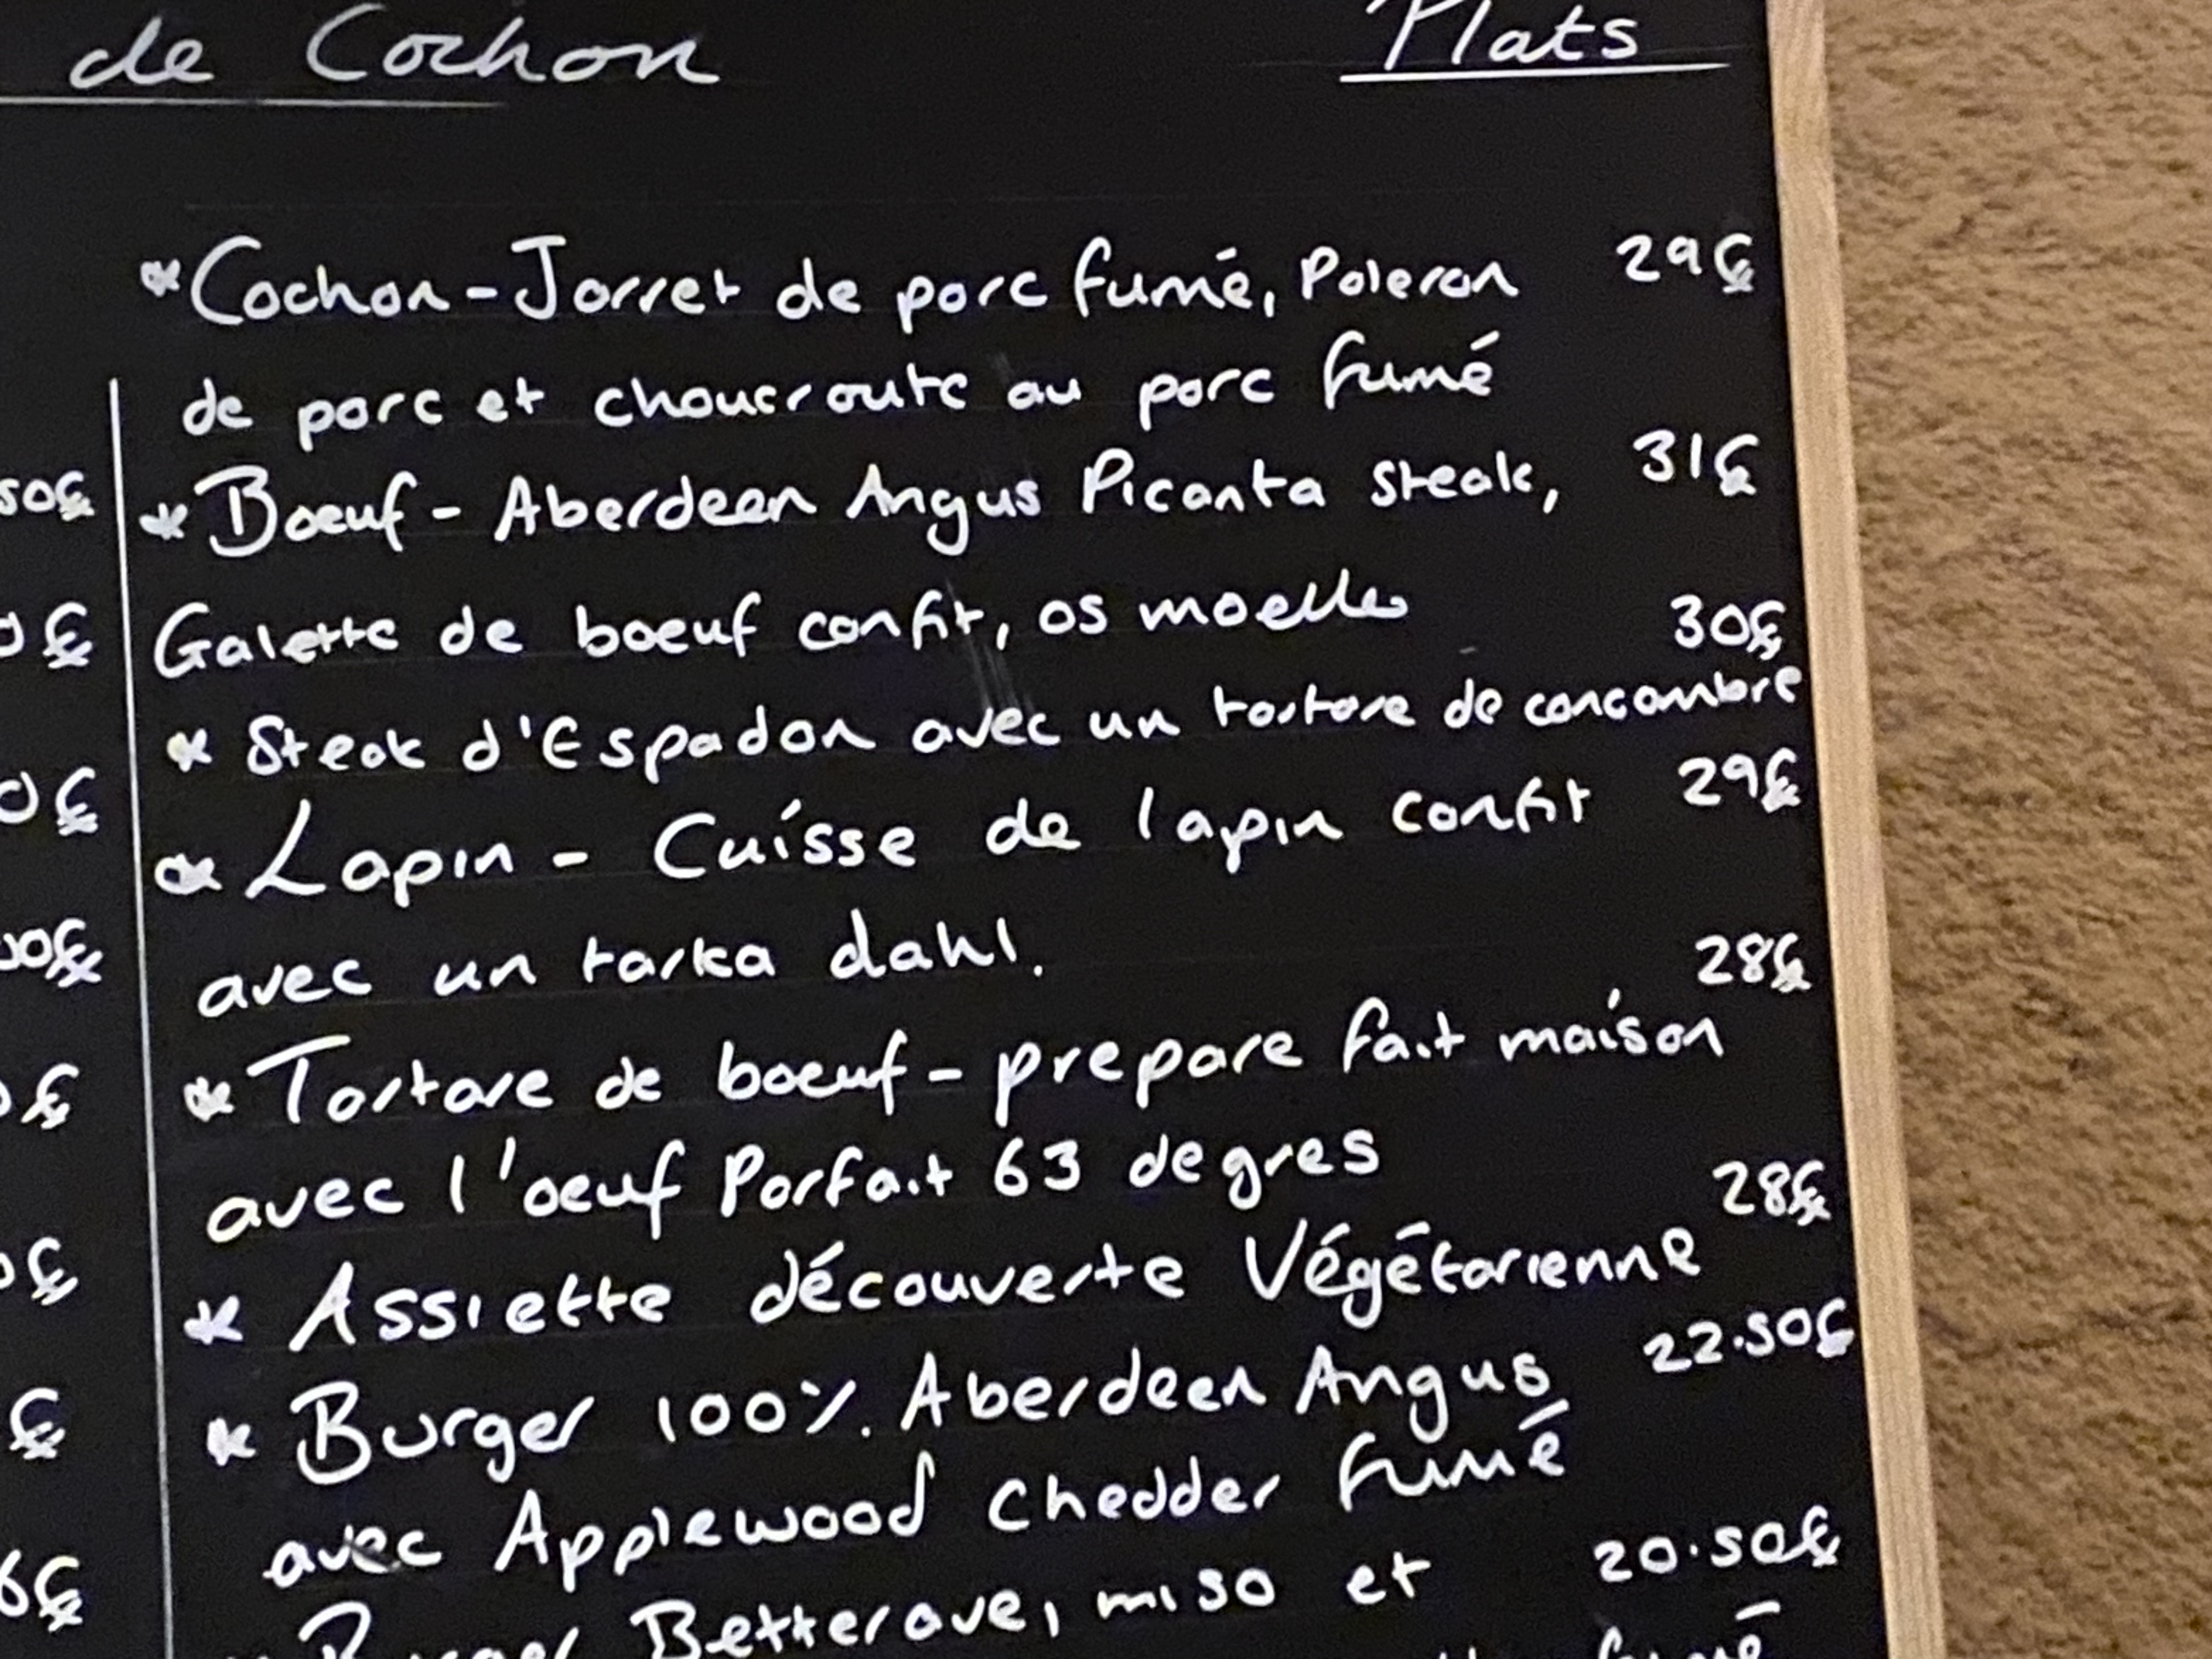 de Cochon
Plats
*Cochon-Jarret de porc fumé, Poleron 29€
de porc et choucroute au porc fumé
50€
*Boeuf - Aberdeen Angus Picanta steak, 31€
0€
Galette de boeuf confit, os moelle
30€
* Steak d'Espadon avec un tartare de concombre
0€
* Lapin - Cuisse de lapin confit 29€
00€
avec un tarka dahl.
28€
* Tartare de boeuf - prepare fait maison
avec l'oeuf Parfait 63 degres
28€
* Assiette découverte Végétarienne
22.50€
€
* Burger 100% Aberdeen Angus
avec Applewood Chedder fumé
6€
20.50€
Burger Betterave, miso et
fumé